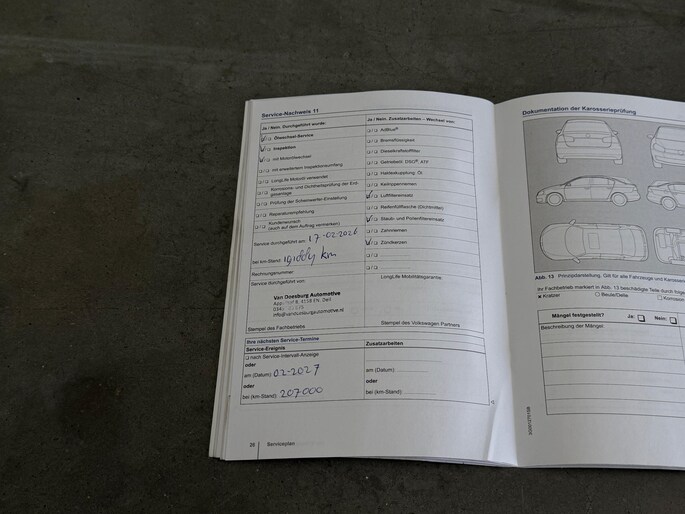 Service-Nachweis 11
Ja / Nein, Durchgeführt wurde:
Ölwechsel-Service
Inspektion
mit Motorölwechsel
mit erweitertem Inspektionsumfang
LongLife Motoröl verwendet
Korrosions- und Dichtheitsprüfung der Erd-
gasanlage
Prüfung der Scheinwerfer-Einstellung
Reparaturempfehlung
Kundenwunsch
(auch auf dem Auftrag vermerken)
Service durchgeführt am: 17-02-2026
bei km-Stand: km
Rechnungsnummer:
Service durchgeführt von:
Van Doesburg Automotive
Stempel des Fachbetriebs
Ja / Nein, Zusatzarbeiten – Wechsel von:
AdBlue®
Bremsflüssigkeit
Dieselkraftstofffilter
Getriebeöl: DSG®, ATF
Haldexkupplung: Öl
Keilrippenriemen
Luftfiltereinsatz
Reifenfüllflasche (Dichtmittel)
Staub- und Pollenfiltereinsatz
Zahnriemen
Zündkerzen
LongLife Mobilitätsgarantie:
Stempel des Volkswagen Partners
Ihre nächsten Service-Termine
Service-Ereignis
nach Service-Intervall-Anzeige
oder
am (Datum): 02-2027
oder
bei (km-Stand): 207000
Zusatzarbeiten
am (Datum):
oder
bei (km-Stand):
38 Serviceplan
Dokumentation der Karosserieprüfung
Abb. 13 Prinzipdarstellung. Gilt für alle Fahrzeuge und
Ihr Fachbetrieb markiert in Abb. 13 beschädigte Teile durch
Kratzer Beule/Delle
Mängel festgestellt? Ja: Nein:
Beschreibung der Mängel: